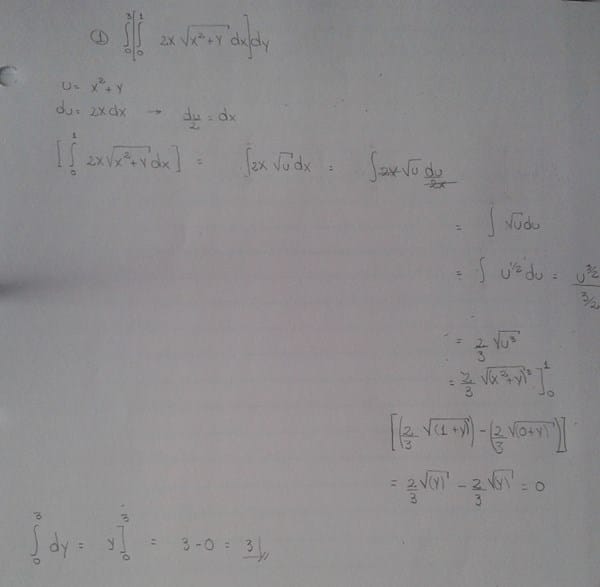 ① ∫₀³[∫₀¹ 2x √(x²+y) dx]dy
u = x²+y
du = 2x dx → du/2 = dx
[∫₀¹ 2x√(x²+y) dx] = ∫2x √u dx = ∫2x √u du/2x
= ∫ √u du
= ∫ u^(1/2) du = u^(3/2)/(3/2)
= 2/3 √u³
= 2/3 √(x²+y)³ ]₀¹
[(2/3 √(1+y)) − (2/3 √(0+y))]
= 2/3 √(y) − 2/3 √(y) = 0
∫₀³ dy = y]₀³ = 3−0 = 3